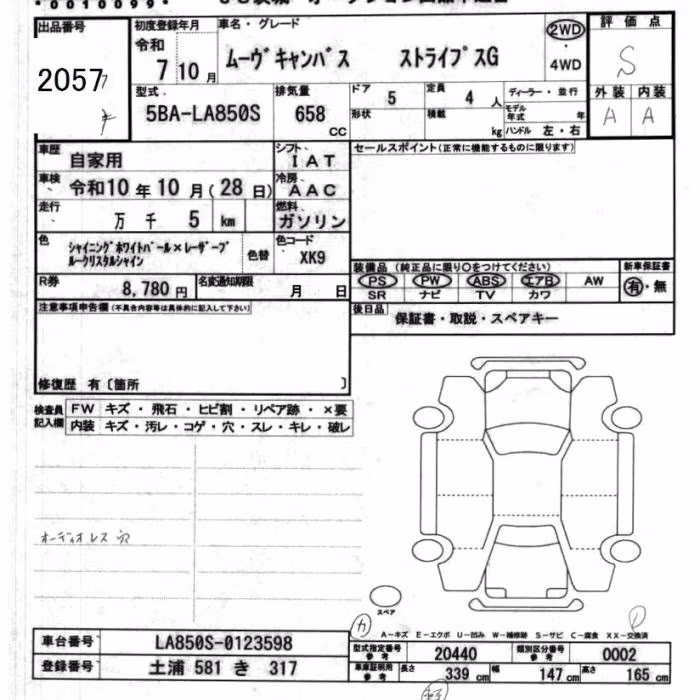 *0010099*
出品番号
2057
初度登録年月
令和
7 10 月
車名・グレード
ムーヴキャンバス ストライプスG
2WD
・
4WD
評価点
S
外装 内装
A A
型式
5BA-LA850S
排気量
658
CC
ドア 5
定員 4 人
形状
積載 kg
ディーラー・並行
モデル年式 年
ハンドル 左・右
車歴 自家用
シフト IAT
車検 令和10年10月(28日)
冷房 AAC
走行 万 千 5 km
燃料 ガソリン
色 シャイニングホワイトパール×レーザーブ
ルークリスタルシャイン
色替
色コード XK9
R券 8,780 円
名変通知期限 月 日
セールスポイント(正常に機能するものに限ります)
装備品 (純正品に限り○をつけてください)
PS PW ABS エアB AW
SR ナビ TV カワ
新車保証書
有・無
後日品 保証書・取説・スペアキー
注意事項申告欄(不具合内容等は具体的に記入して下さい)
修復歴 有〔箇所 〕
検査員記入欄
FW キズ・飛石・ヒビ割・リペア跡・×要
内装 キズ・汚レ・コゲ・穴・スレ・キレ・破レ
オーディオレス 穴
スペア
A−キズ E−エクボ U−凹み W−補修跡 S−サビ C−腐食 XX−交換済
車台番号 LA850S-0123598
登録番号 土浦 581 き 317
型式指定番号参考 20440
類別区分番号参考 0002
車庫証明用参考 長さ 339 cm 幅 147 cm 高さ 165 cm